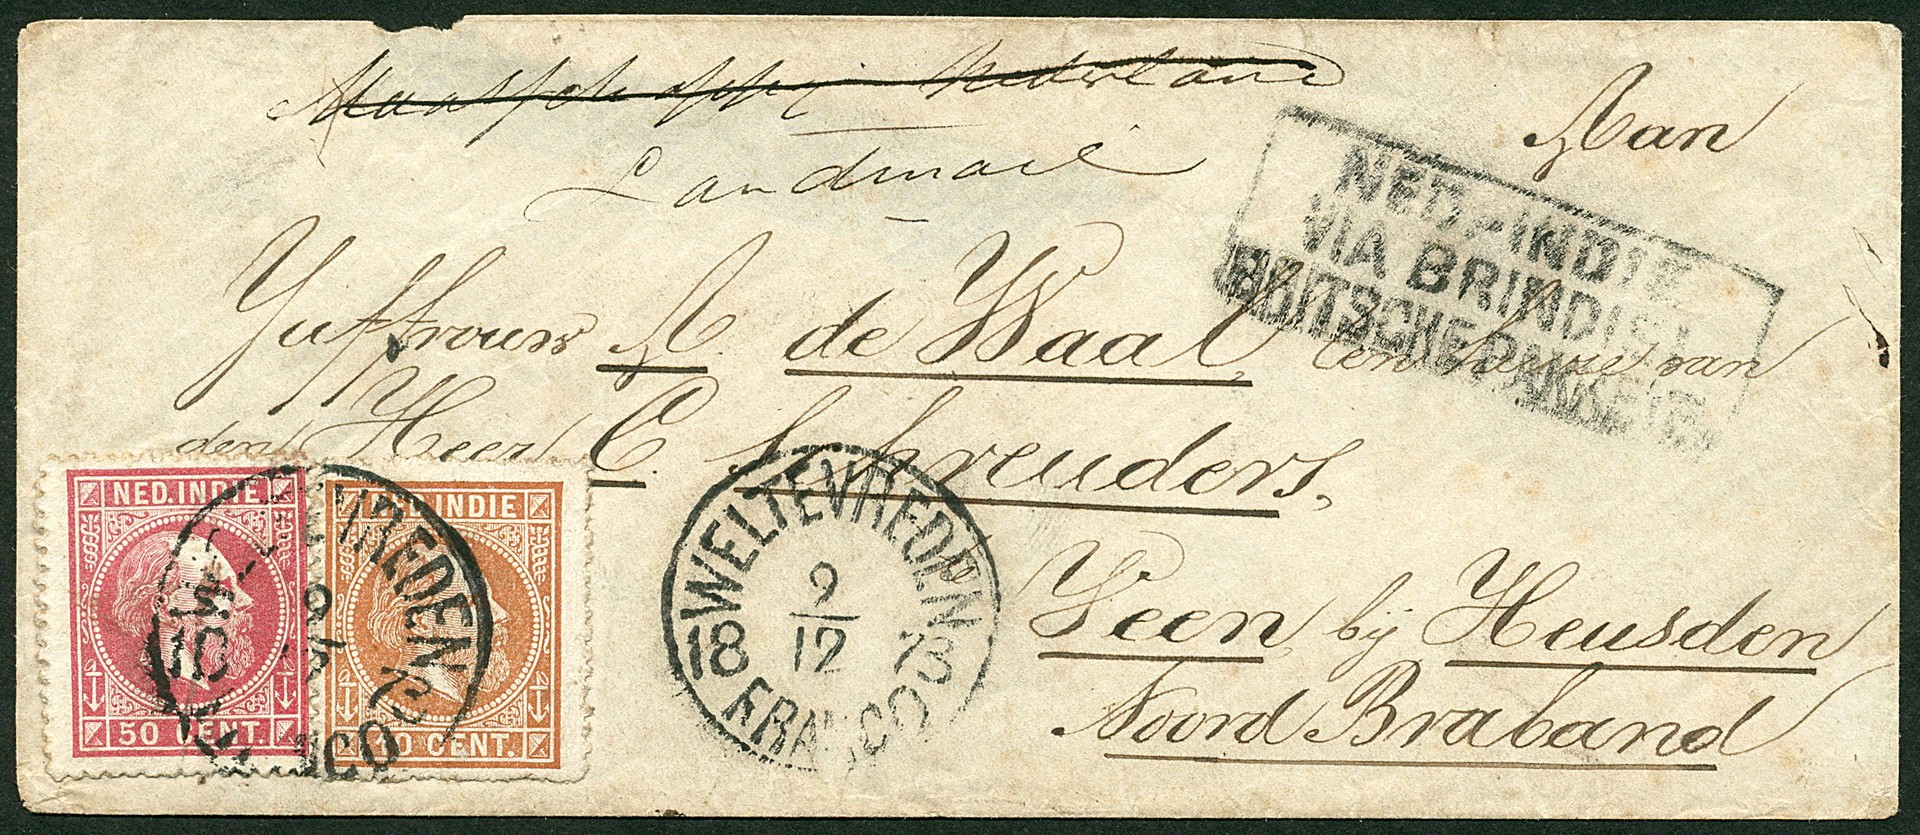 Maatschappij Nederland
Landmail
Aan
NED.-INDIE
VIA BRINDISI
DUITSCHE PAKKET
Juffrouw A. de Waal, ten huize van
den Heer C. Schreuders,
Veen, bij Heusden
Noord Braband
NED.INDIE
50 CENT.
NED.INDIE
10 CENT.
WELTEVREDEN
9/12
18 73
FRANCO
WELTEVREDEN
9/12
18 73
FRANCO